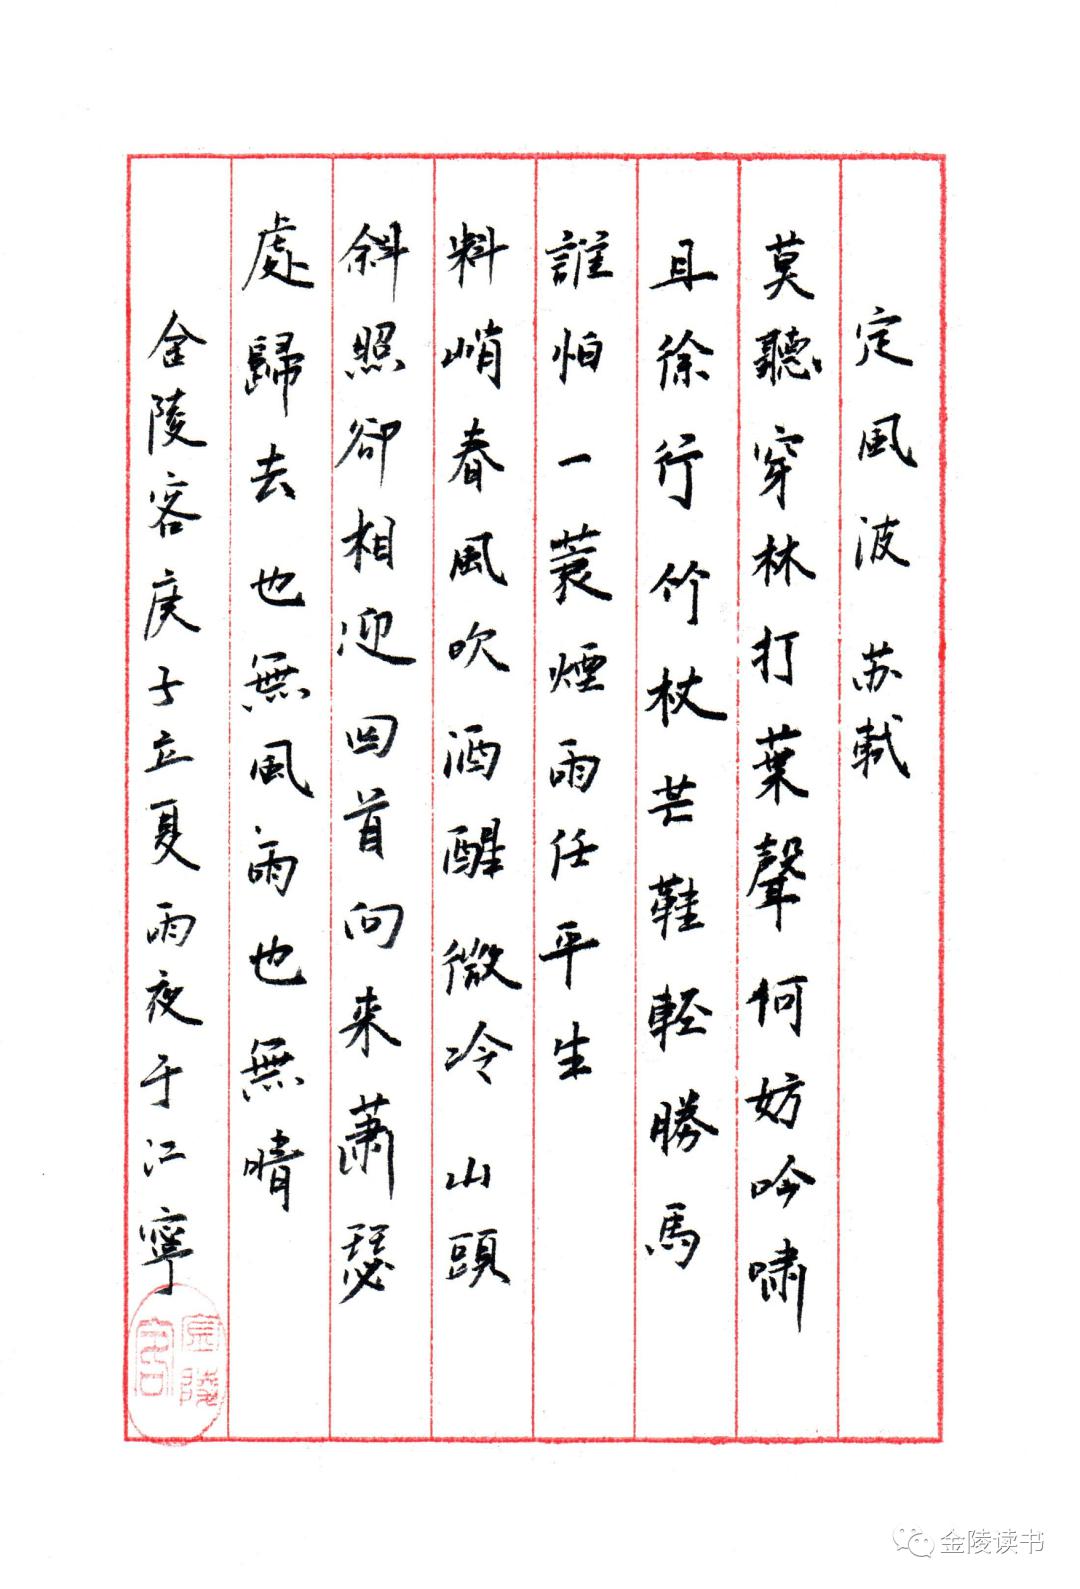 定風波 苏軾
莫聽穿林打葉聲何妨吟嘯
且徐行竹杖芒鞋輕勝馬
誰怕一蓑煙雨任平生
料峭春風吹酒醒微冷山頭
斜照卻相迎回首向来蕭瑟
處歸去也無風雨也無晴
金陵客庚子立夏雨夜于江寧
金陵客
金陵读书